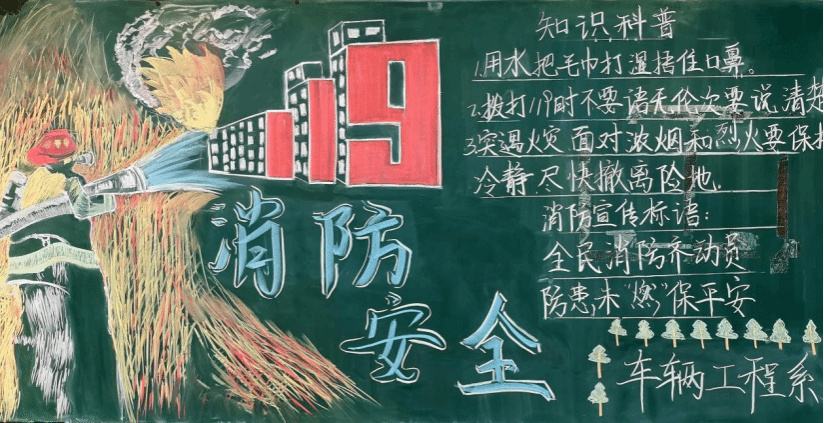 119
消防
安全
知识科普
1.用水把毛巾打湿捂住口鼻。
2.拨打119时不要语无伦次要说清楚
3.突遇火灾面对浓烟和烈火要保持
冷静尽快撤离险地.
消防宣传标语:
全民消防齐动员
防患,未"燃"保平安
车辆工程系